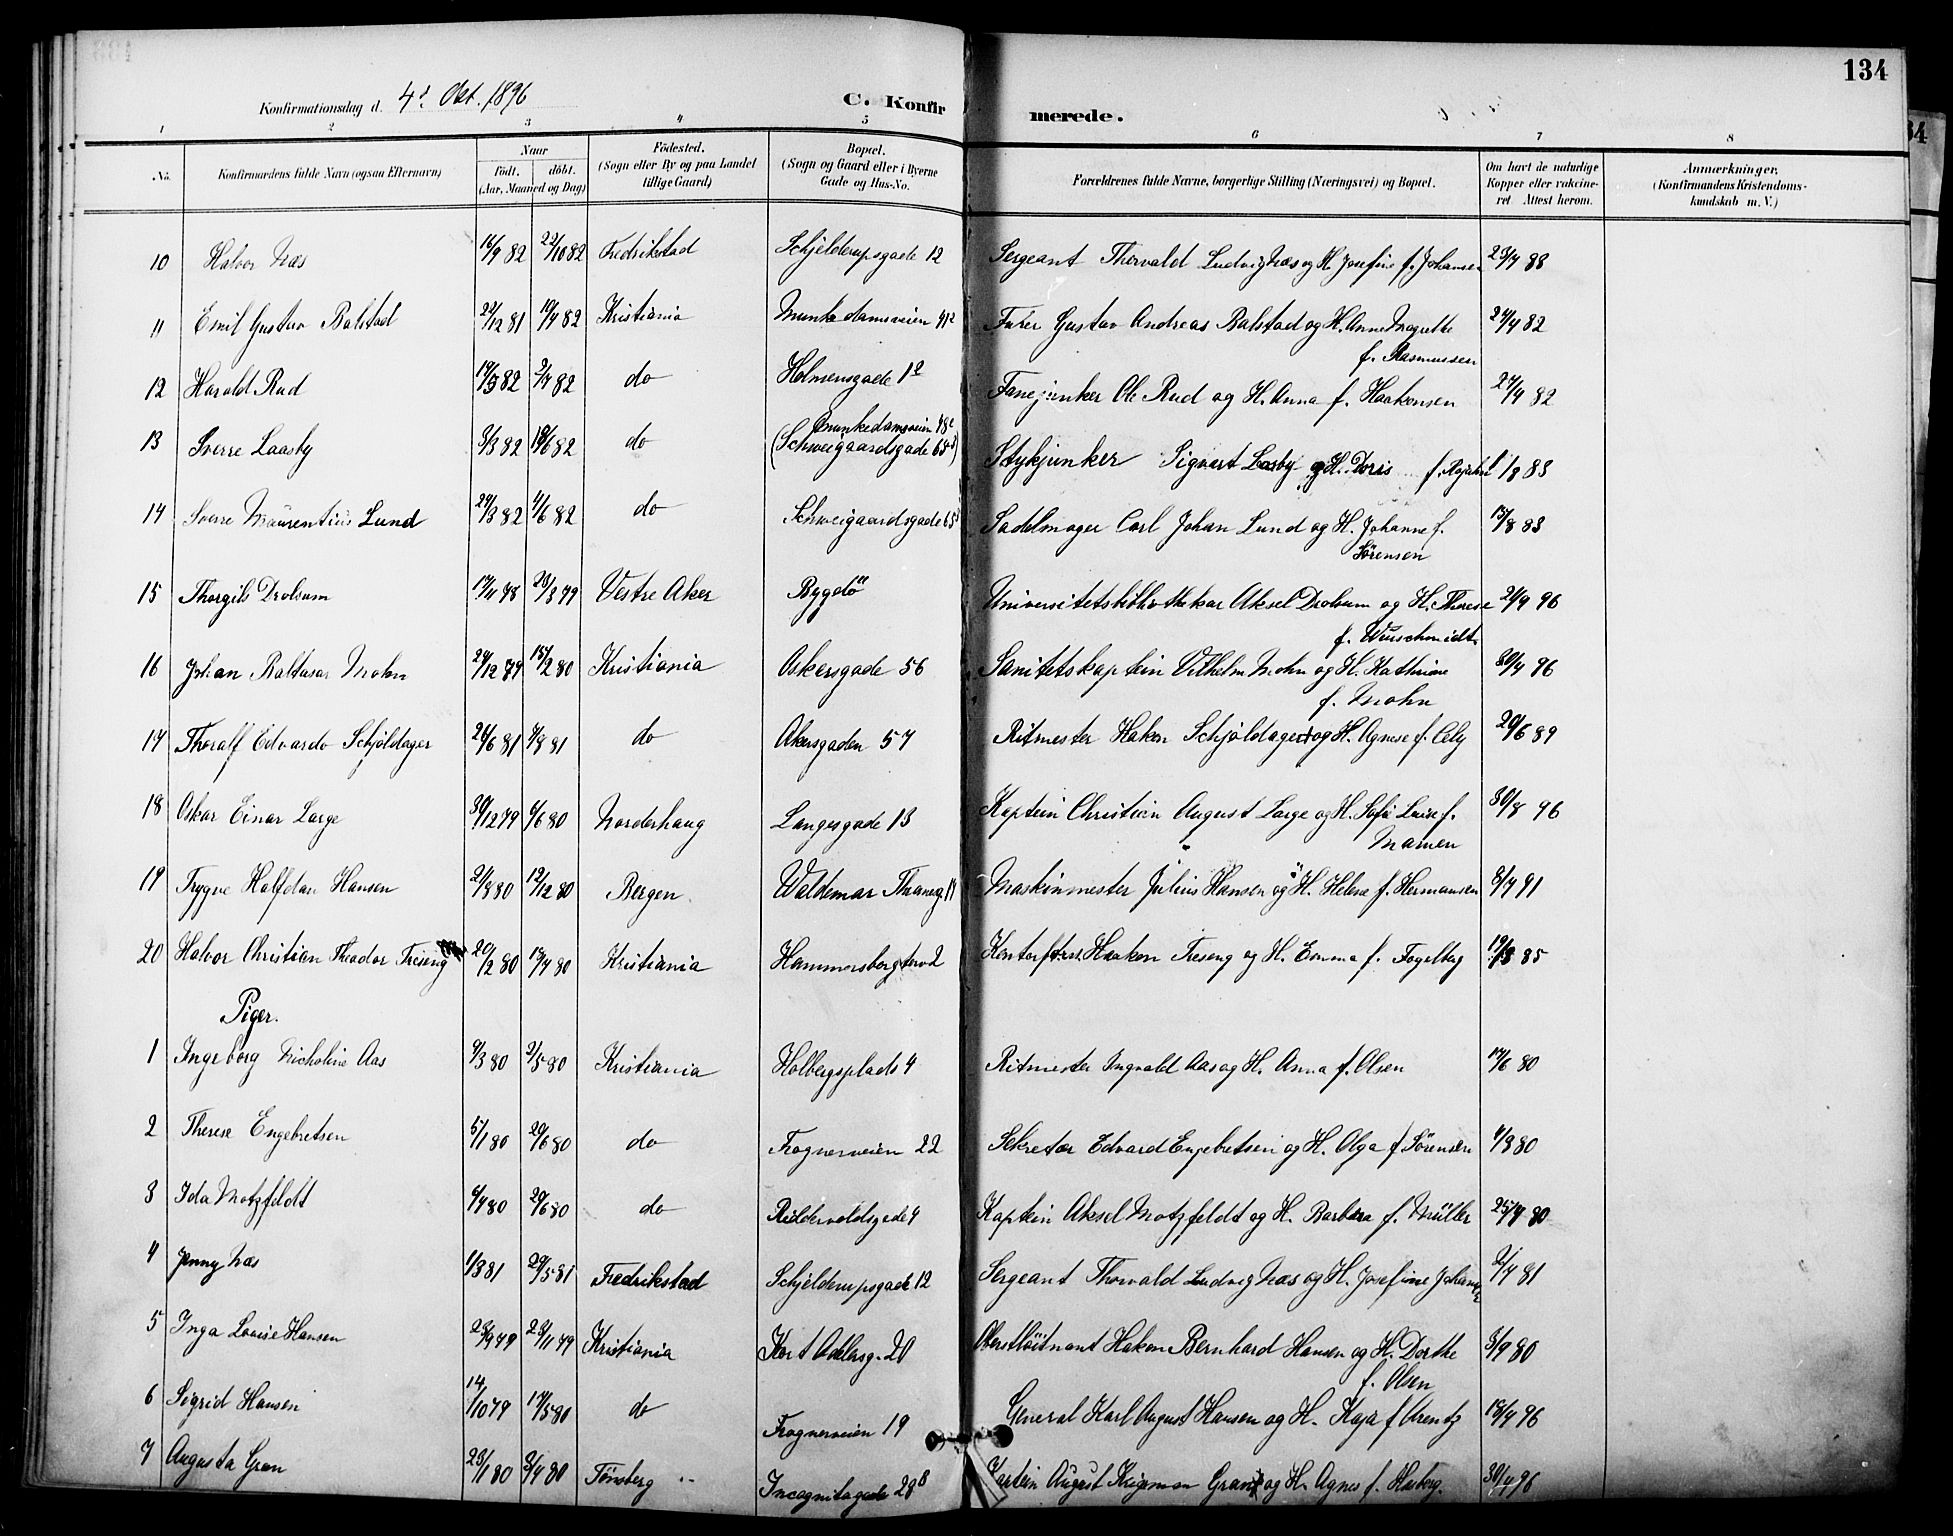 134
Konfirmationsdag d. 4de Okt. 1896 C. Konfir merede.
1 2 3 4 5 6 7 8
No. Konfirmandens fulde Navn (ogsaa Efternavn) Naar födt. döbt. (Aar, Maaned og Dag) Födested. (Sogn eller By og paa Landet tillige Gaard) Bopæl. (Sogn og Gaard eller i Byerne Gade og Hus-No. Forældrenes fulde Navne, borgerlige Stilling (Næringsvei) og Bopæl. Om havt de naturlige Kopper eller vakcineret. Attest herom. Anmærkninger. (Konfirmandens Kristendomskundskab m. V.)
10 Halvor Næs 16/9 82 22/10 82 Fredrikstad Schjelderupsgade 12 Sergeant Thorvald Ludvig Næs og H. Josefine f. Johansen 23/7 88
11 Emil Gustav Balstad 22/12 81 10/4 82 Kristiania Munkedamsveien Furer Gustav Andreas Balstad og H. Anne Magrethe 24/4 82
f. Rasmussen
12 Harald Rud 14/3 82 2/7 82 do Holmensgade 12 Fanejunker Ole Rud og H. Anna f. Haakensen 27/4 82
Munkedamsveien
13 Sverre Laasby 3/3 82 18/6 82 do (Schweigaardsgade Stykjunker Sigvart Laasby og H. Doris f. 1/8 83
14 Sverre Maurentius Lund 24/3 82 4/6 82 do Schweigaardsgade 65 Sadelmager Carl Johan Lund og H. Johanne f. 15/8 83
Sörensen
15 Thorgils Drolsum 17/11 78 23/3 79 Vestre Aker Bygdö Universitetsbibliothekar Aksel Drolsum og H. Therese 21/9 96
f. Würschmidt
16 Johan Baltasar Mohn 24/12 79 15/2 80 Kristiania Akersgade 56 Sanitetskaptein Vilhelm Mohn og H. Kathrine 30/4 96
f. Mohn
17 Thoralf Edvardo Schjöldager 26/6 81 7/8 81 do Akersgaden 57 Ritmester Haken Schjöldager og H. Agnese f. Cely 20/6 89
18 Oskar Einar Lorge 30/12 79 6/6 80 Norderhaug Langesgade 13 Kaptein Christian August Lorge og H. Sofie Louise f. 30/8 96
Mamen
19 Trygve Halfdan Hansen 21/8 80 12/12 80 Bergen Waldemar Thranesg. Maskinmester Julius Hansen og H. Helene f. Hermansen 8/7 91
20 Halvor Christian Theodor Treseng 20/2 80 17/4 80 Kristiania Hammersborgtorv 2 Haakon Treseng og H. Emma f. Fogelberg 19/3 85
Piger.
1 Ingeborg Nicholine Aas 9/3 80 2/5 80 Kristiania Holbergsplads 4 Ritmester Ingvald Aas og H. Anna f. Olsen 17/6 80
2 Therese Engebretsen 5/1 80 20/6 80 do Frognerveien 22 Sekretær Edvard Engebretsen og H. Olga f. Sörensen 4/8 80
3 Ida Motzfeldt 6/4 80 20/6 80 do Riddervoldsgade 4 Kaptein Aksel Motzfeldt og H. Barbara f. Müller 25/4 80
4 Jenny Næs 1/3 81 29/5 81 Fredrikstad Schjelderupsgade 12 Sergeant Thorvald Ludvig Næs og H. Josefine Johansen 2/7 81
5 Inga Louise Hansen 23/9 79 23/11 79 Kristiania Kort Adelersg. 20 Oberstlöitnant Haken Bernhard Hansen og H. Dorthe 3/9 80
f. Olsen
6 Sigrid Hansen 14/10 79 17/5 80 do Frognerveien 19 General Karl August Hansen og H. Kaja f. Arentz 18/9 96
7 Augusta Gran 23/1 80 3/4 80 Tönsberg Incognitogade 28 Kaptein August Krigsman Gran og H. Agnes f. 30/4 96